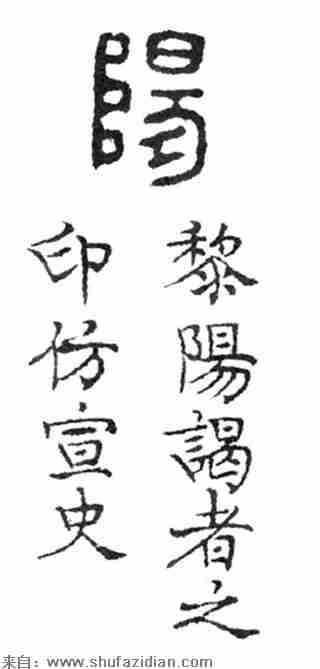 陽
黎陽謁者之
印仿宣史
来自：www.shufazidian.com